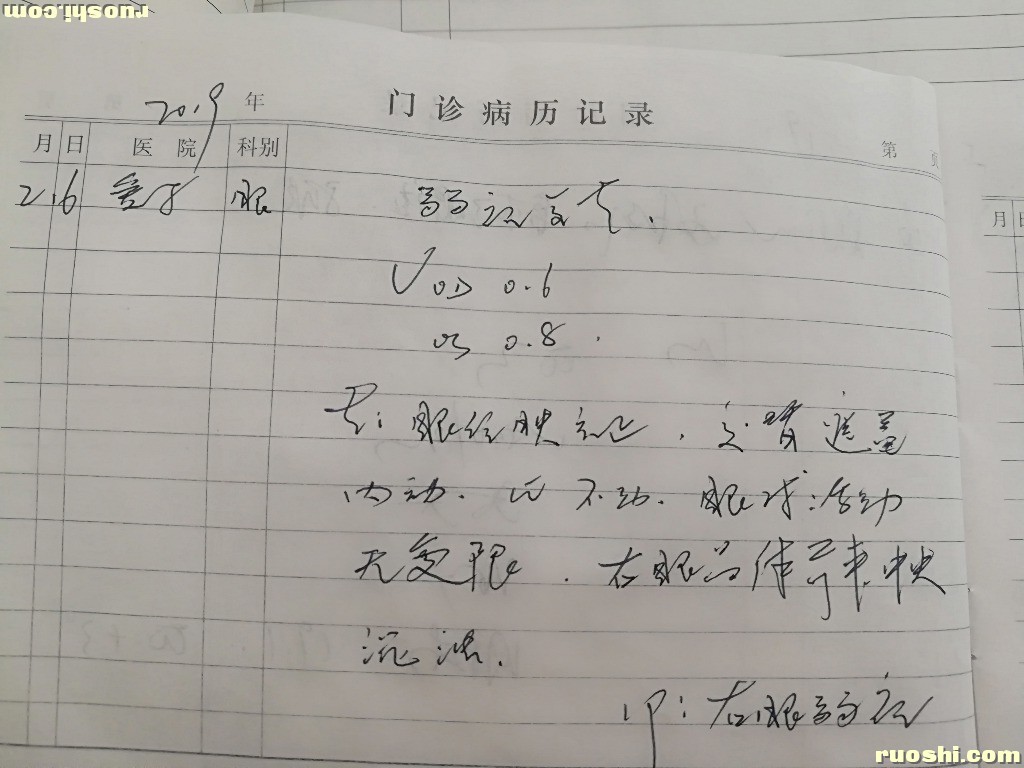 ruoshi.com
2019 年 门诊病历记录
第 页
月 日 医院 科别
月 日
2.6 眼 弱视复查.
VOD 0.6
OS 0.8.
查: 眼位映正位, 交替遮盖
内动. 不动. 眼球:活动
无受限. 右眼晶体 中央
混浊.
IP: 右眼弱视
ruoshi.com